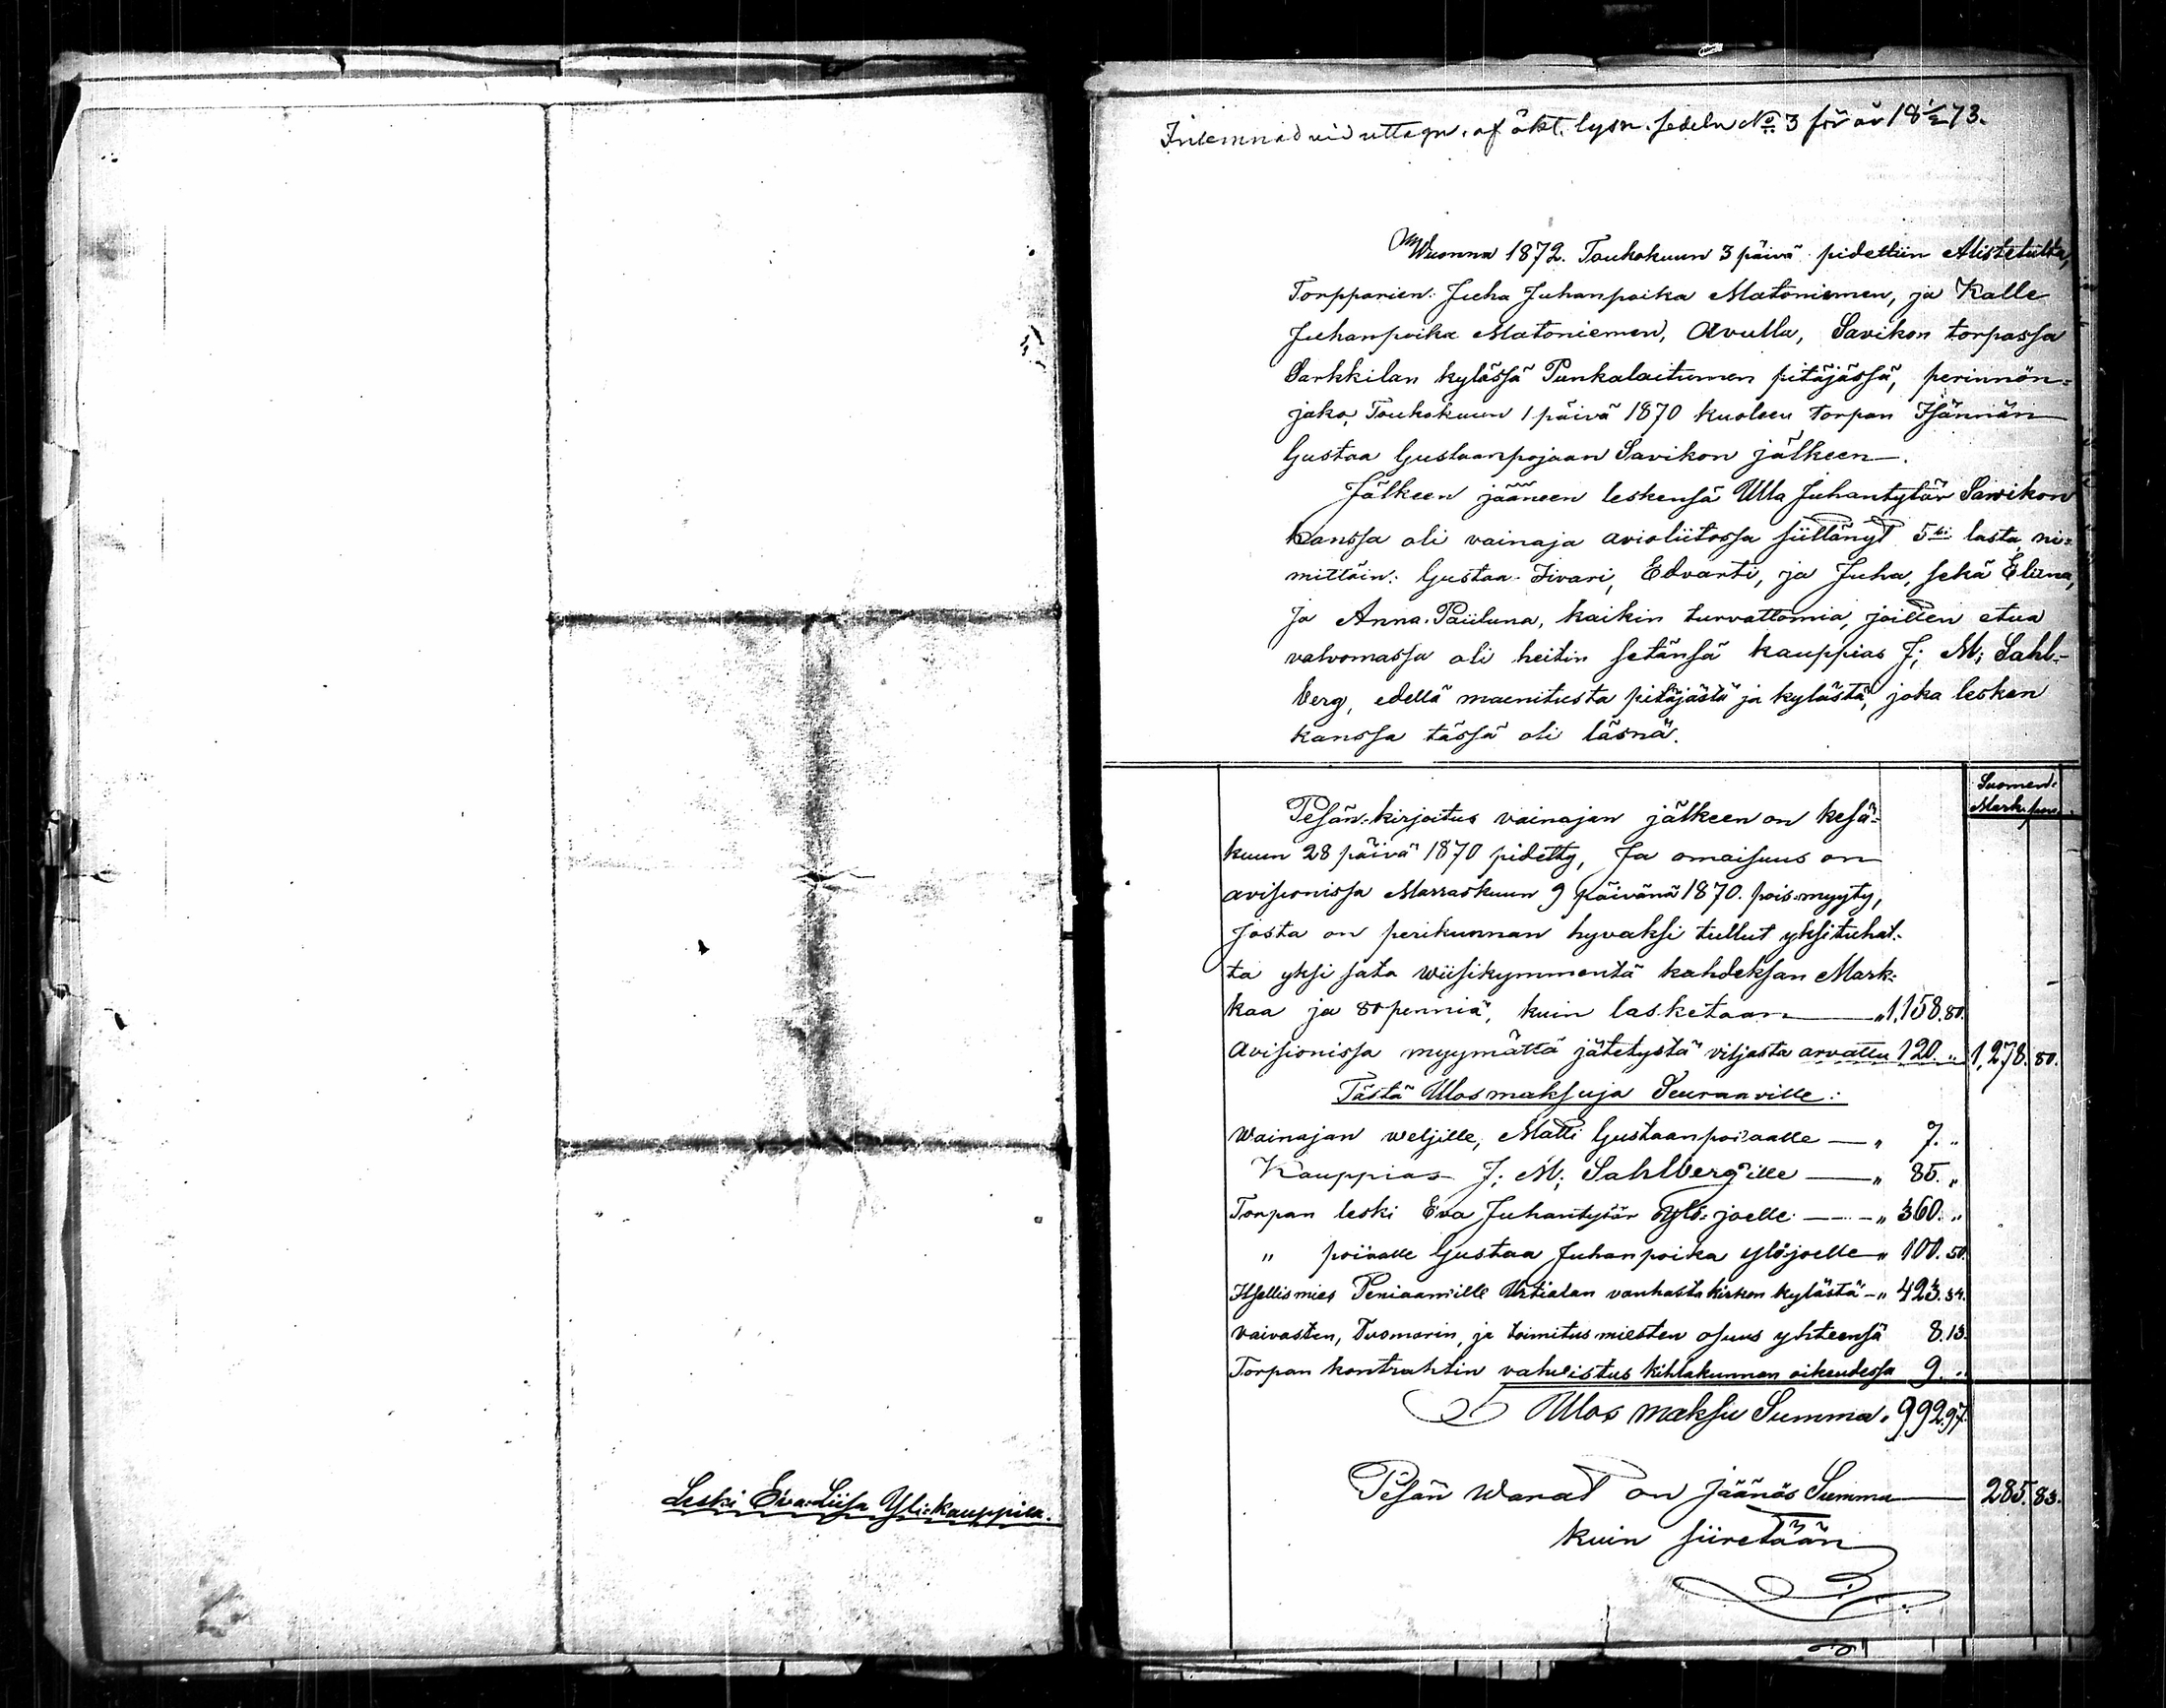 Leski Eva Liisa Yli-kauppila.
Inlemnad vid uttagn. af ökt. lysn. sedeln No 3 för år 18 1/2 73.
Wuonna 1872. Toukokuun 3 päivä pidettiin Alistetulta,
Torpparien: Juha Juhanpoika Matoniemen, ja Kalle
Juhanpoika Matoniemen, Avulla, Savikon torpassa
Sarkkilan kylässä Punkalaitumen pitäjässä, perinnön-
jako, Toukokuun 1 päivä 1870 kuoleen torpan Isännän
Gustaa Gustaanpojaan Savikon jälkeen.
Jälkeen jääneen leskensä Ulla Juhantytär Sawikon
kanssa oli vainaja avioliitossa siittänyt 5si lasta, ni-
mittäin: Gustaa-Iivari, Edvarti, ja Juha, sekä Eliina,
ja Anna-Päiluna, kaikin turvattomia, joitten etua
valvomassa oli heitin setänsä kauppias J; M; Sahl-
berg, edellä maenitusta pitäjästä ja kylästä, joka lesken
kanssa tässä oli läsnä.
Suomend:
Mark. pen
Pesän-kirjoitus vainajan jälkeen on kesä-
kuun 28 päivä 1870 pidetty, Ja omaisuus on
avisionissa Marraskuun 9 päivänä 1870. pois-myyty,
josta on perikunnan hyvaksi tullut yksituhat-
ta yksi sata wiisikymmentä kahdeksan Mark-
kaa ja 80 penniä, kuin lasketaan — " 1,158.80.
Avisionissa myymättä jätetystä viljasta arvattu 120. " 1,278. 80.
Tästä Ulosmaksuja Seuraaville:
Wainajan weljille, Matti Gustaanpoiaalle — " 7. "
Kauppias J; M; Sahlberg'ille — " 85. "
Torpan leski Eva Juhantytär Ylö-joelle — " 360. "
" poiaalle Gustaa Juhanpoika ylöjoelle " 100. 50.
Itsellismies Peniaamille Urtialan vanhasta kirkon kylästä — " 423. 34.
vaivasten, Tuomarin, ja toimitus miesten osuus yhteensä 8. 13.
Torpan kontrahtin vahvistus kihlakunnan oikeudessa 9. "
Ulos maksu Summa. 992.97.
Pesän Warat on jäänös Summa — 285. 83.
kuin siiretään